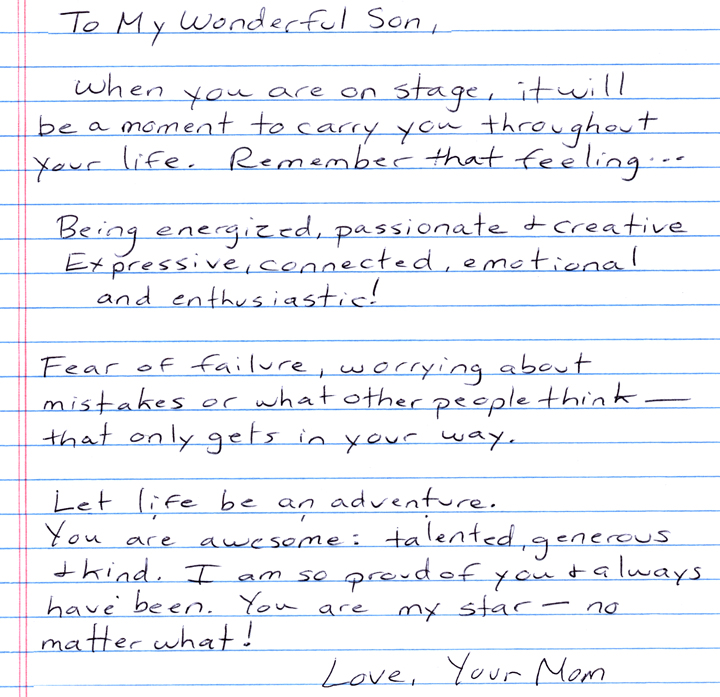 To My Wonderful Son,
When you are on stage, it will
be a moment to carry you throughout
your life. Remember that feeling...
Being energized, passionate + creative
Expressive, connected, emotional
and enthusiastic!
Fear of failure, worrying about
mistakes or what other people think —
that only gets in your way.
Let life be an adventure.
You are awesome: talented, generous
+ kind. I am so proud of you + always
have been. You are my star — no
matter what!
Love, Your Mom